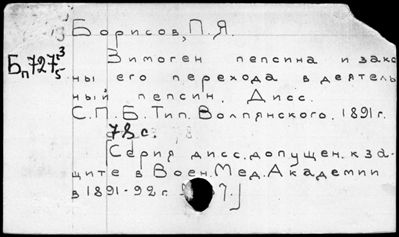 Борисов, П. Я.
Зимоген пепсина и зако
Бп 727 3/5
ны его перехода в деятель
ный пепсин. Дисс.
С.П.Б. Тип. Волпянского. 1891г.
78 с.
[Серия дисс. допущен. к за-
щите в Воен. Мед. Академии
в 1891-92 г. 7.]